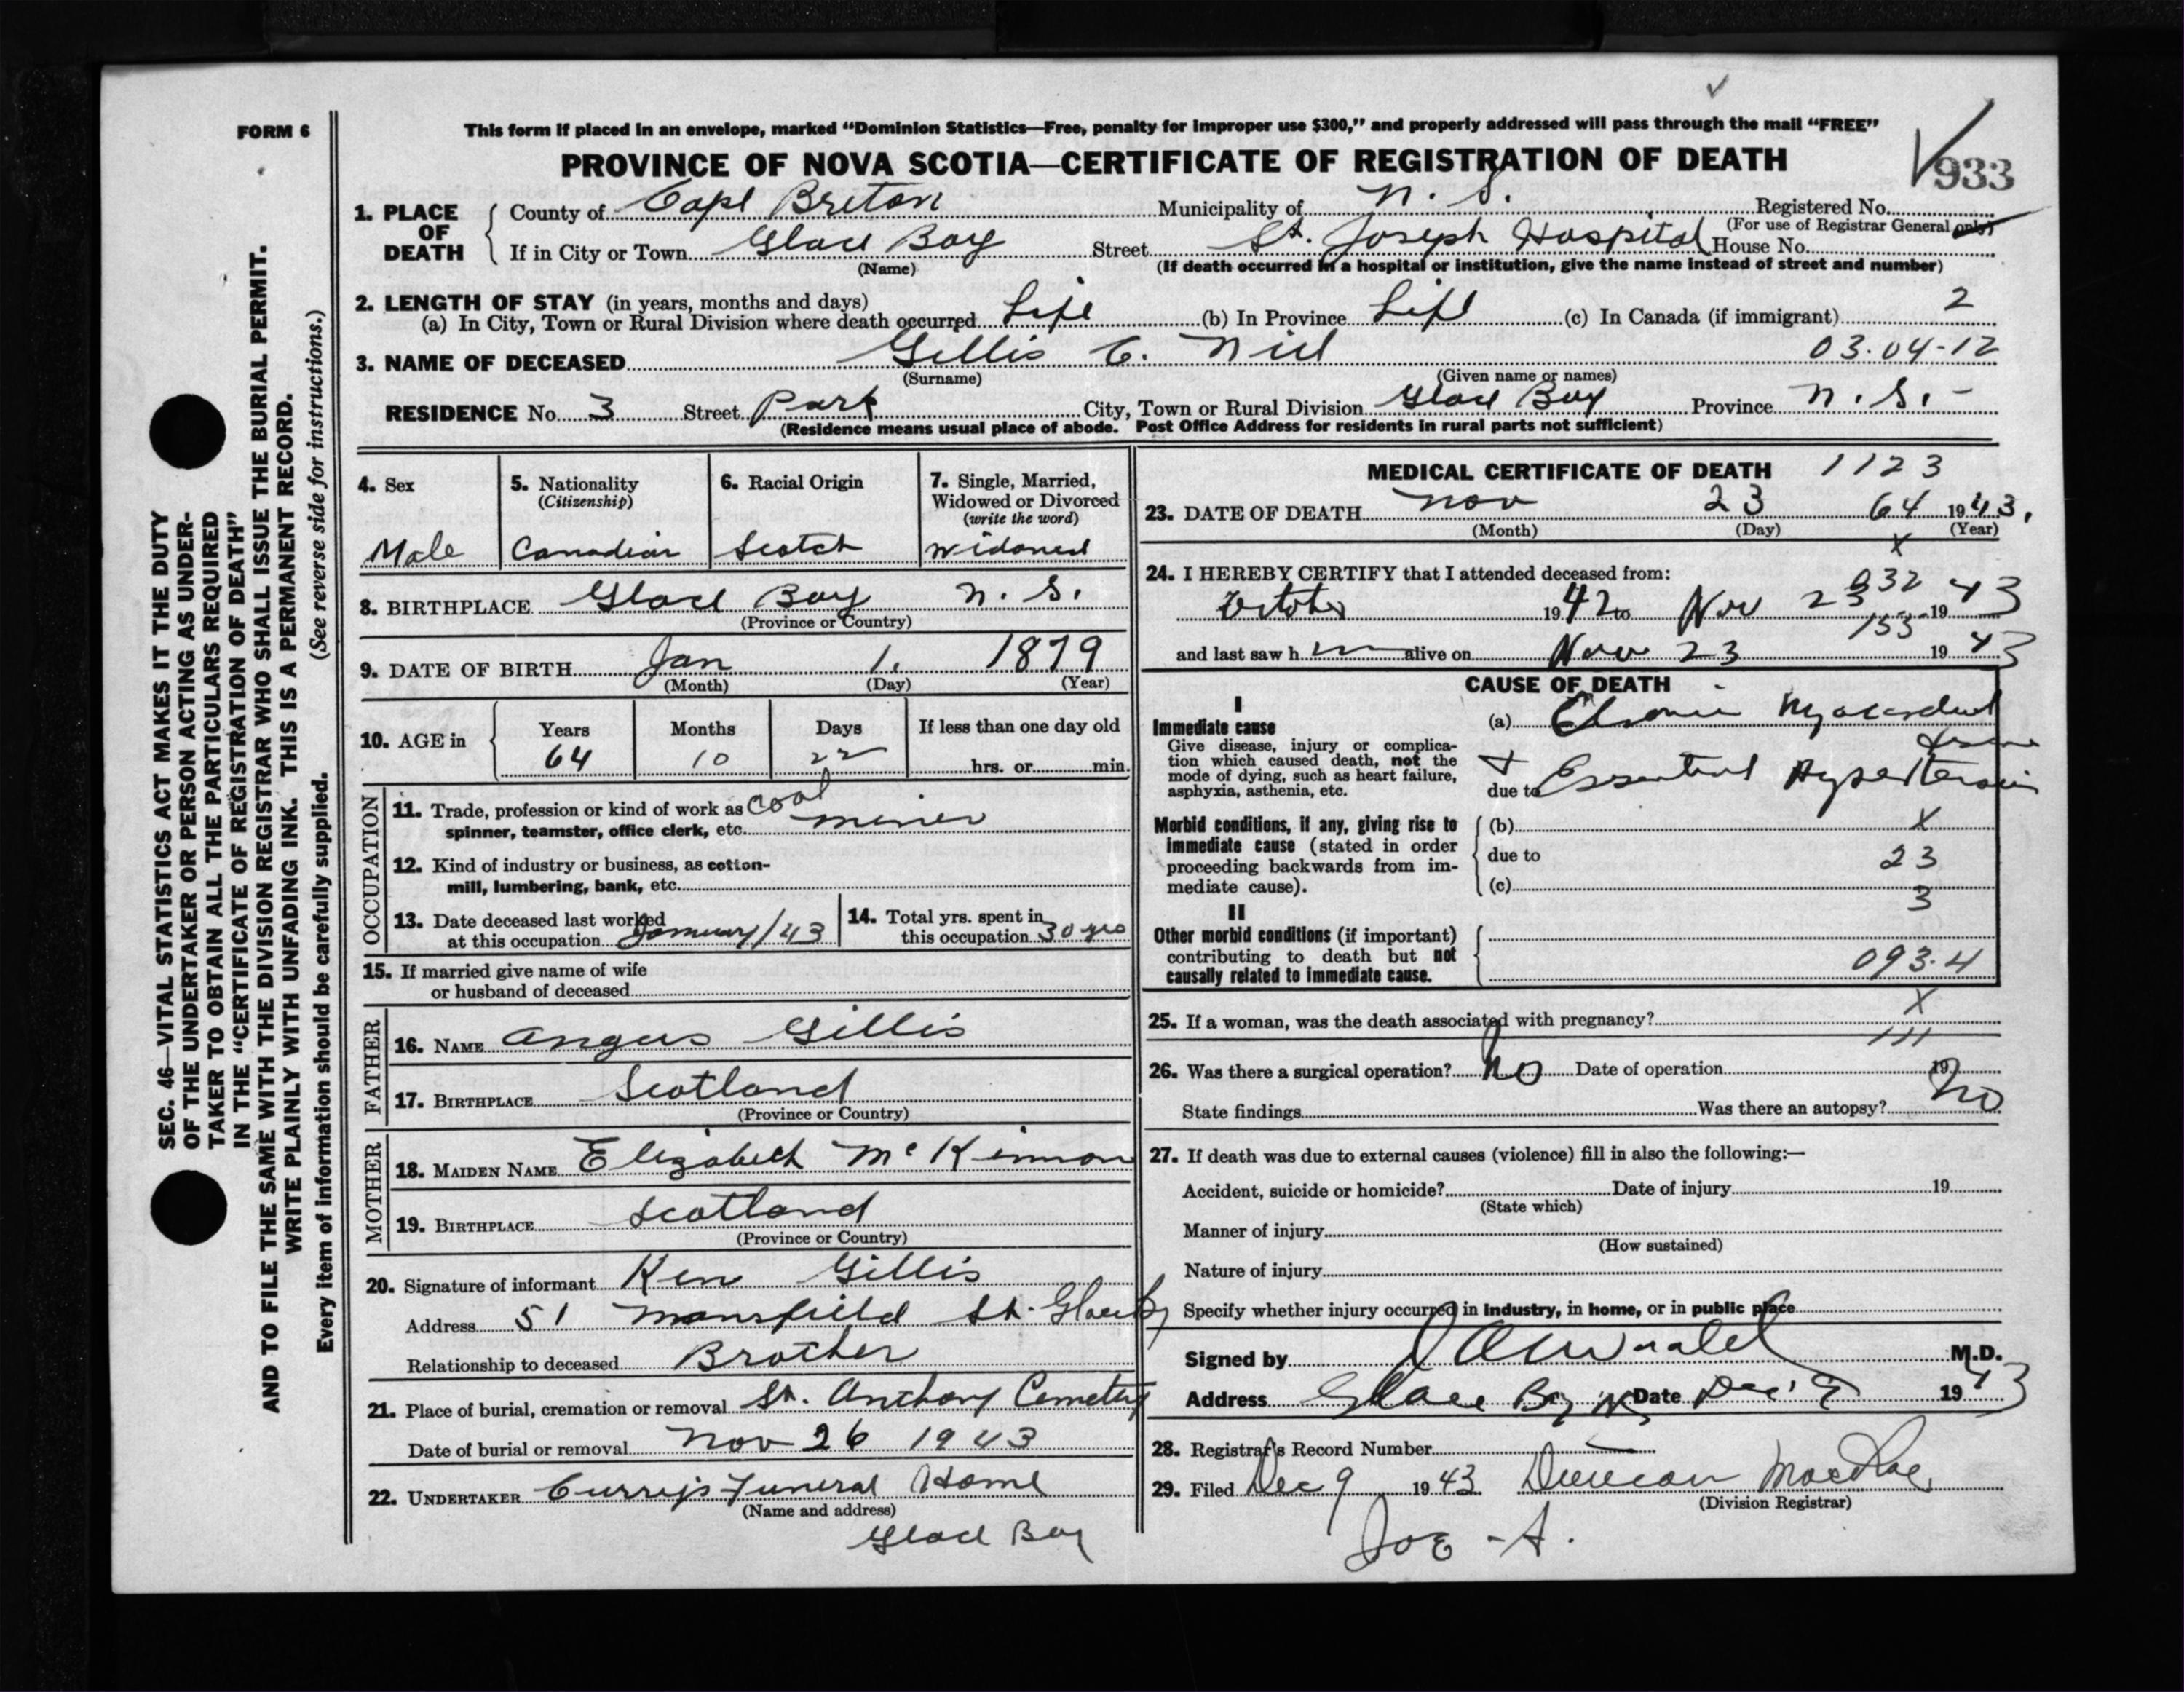 FORM 6
This form if placed in an envelope, marked “Dominion Statistics—Free, penalty for improper use $300,” and properly addressed will pass through the mail “FREE”
PROVINCE OF NOVA SCOTIA—CERTIFICATE OF REGISTRATION OF DEATH
933
1. PLACE OF DEATH
County of Cape Breton Municipality of N. S. Registered No.
(For use of Registrar General only)
If in City or Town Glace Bay Street St. Joseph Hospital House No.
(Name) (If death occurred in a hospital or institution, give the name instead of street and number)
2. LENGTH OF STAY (in years, months and days)
(a) In City, Town or Rural Division where death occurred Life (b) In Province Life (c) In Canada (if immigrant) 2
3. NAME OF DECEASED Gillis C. Niel 03.04-12
(Surname) (Given name or names)
RESIDENCE No. 3 Street Park City, Town or Rural Division Glace Bay Province N. S. -
(Residence means usual place of abode. Post Office Address for residents in rural parts not sufficient)
SEC. 46—VITAL STATISTICS ACT MAKES IT THE DUTY
OF THE UNDERTAKER OR PERSON ACTING AS UNDER-
TAKER TO OBTAIN ALL THE PARTICULARS REQUIRED
IN THE “CERTIFICATE OF REGISTRATION OF DEATH”
AND TO FILE THE SAME WITH THE DIVISION REGISTRAR WHO SHALL ISSUE THE BURIAL PERMIT.
WRITE PLAINLY WITH UNFADING INK. THIS IS A PERMANENT RECORD.
Every item of information should be carefully supplied. (See reverse side for instructions.)
4. Sex
Male
5. Nationality
(Citizenship)
Canadian
6. Racial Origin
Scotch
7. Single, Married,
Widowed or Divorced
(write the word)
Widowed
8. BIRTHPLACE Glace Bay N. S.
(Province or Country)
9. DATE OF BIRTH Jan 1. 1879
(Month) (Day) (Year)
10. AGE in
Years Months Days If less than one day old
64 10 22 hrs. or min.
OCCUPATION
11. Trade, profession or kind of work as coal
spinner, teamster, office clerk, etc. miner
12. Kind of industry or business, as cotton-
mill, lumbering, bank, etc.
13. Date deceased last worked
at this occupation January/43
14. Total yrs. spent in
this occupation 30 yrs
15. If married give name of wife
or husband of deceased
FATHER
16. NAME Angus Gillis
17. BIRTHPLACE Scotland
(Province or Country)
MOTHER
18. MAIDEN NAME Elizabeth McKinnon
19. BIRTHPLACE Scotland
(Province or Country)
20. Signature of informant Ken Gillis
Address 51 Mansfield St. Glace By
Relationship to deceased Brother
21. Place of burial, cremation or removal St. Anthony Cemetery
Date of burial or removal Nov 26 1943
22. UNDERTAKER Curry's Funeral Home
(Name and address)
Glace Bay
MEDICAL CERTIFICATE OF DEATH 1123
23. DATE OF DEATH Nov 23 64 1943.
(Month) (Day) (Year)
X
24. I HEREBY CERTIFY that I attended deceased from:
032
October 1942 to Nov 23 1943
153
and last saw h im alive on Nov 23 1943
CAUSE OF DEATH
I
Immediate cause
Give disease, injury or complica-
tion which caused death, not the
mode of dying, such as heart failure,
asphyxia, asthenia, etc.
(a) Chronic Myocardial
due to Essential Hypertension
Morbid conditions, if any, giving rise to
immediate cause (stated in order
proceeding backwards from im-
mediate cause).
(b) X
due to 23
(c)
3
II
Other morbid conditions (if important)
contributing to death but not
causally related to immediate cause.
093.4
X
25. If a woman, was the death associated with pregnancy?
111
26. Was there a surgical operation? No Date of operation 19
State findings Was there an autopsy? No
27. If death was due to external causes (violence) fill in also the following:—
Accident, suicide or homicide? Date of injury 19
(State which)
Manner of injury
(How sustained)
Nature of injury
Specify whether injury occurred in industry, in home, or in public place
Signed by M.D.
Address Glace Bay NS Date Dec. 9 1943
28. Registrar's Record Number
29. Filed Dec 9 1943 Duncan MacRae
(Division Registrar)